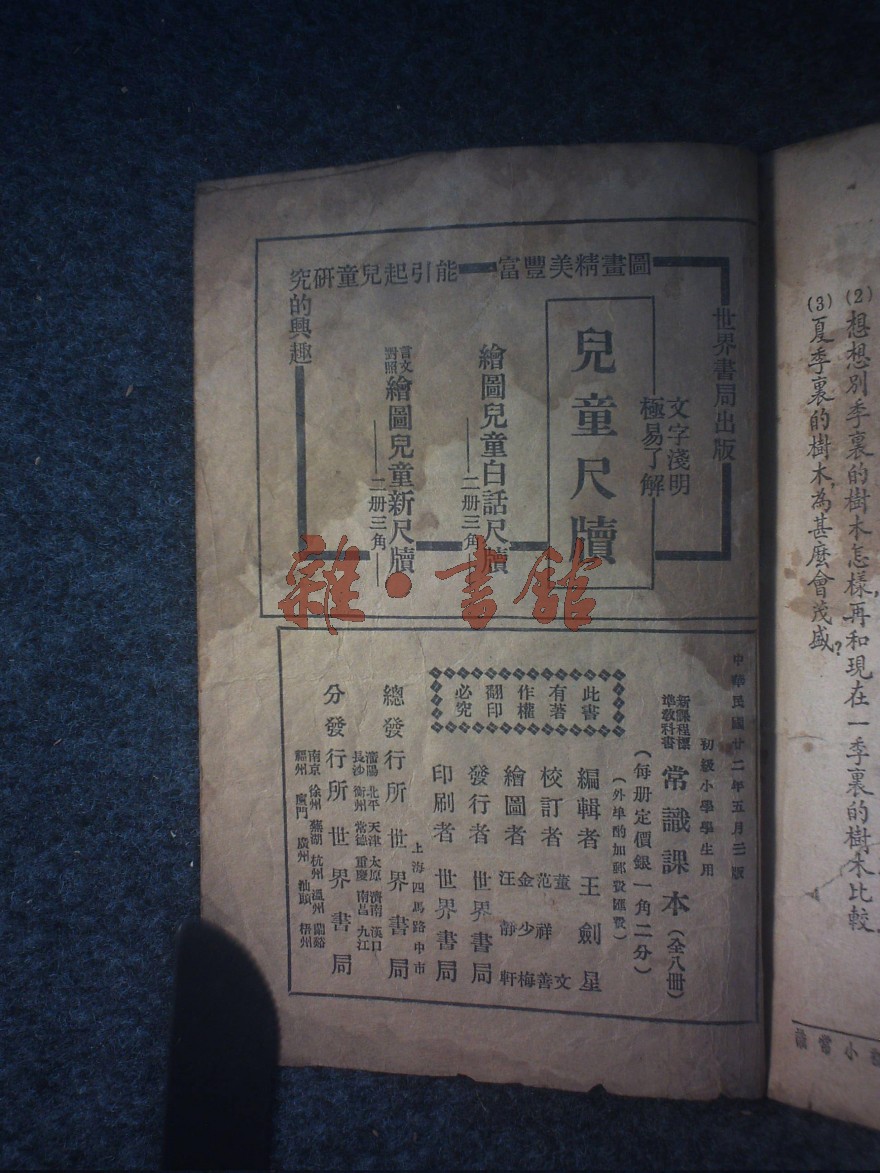 (2)想想別季裏的樹木怎樣,再和現在一季裏的樹木比較.
(3)夏季裏的樹木,為甚麼會茂盛?
世界書局出版
圖畫精美豐富
能引起兒童研究的興趣
文字淺明
極易了解
兒童尺牘
繪圖兒童白話尺牘
二册三角
言文對照
繪圖兒童新尺牘
二册三角
雜·書館
中華民國廿二年五月三版
初級小學學生用
新課程標準教科書
常識課本(全八冊)
(每册定價銀一角二分)
(外埠酌加郵費匯費)
此書有著作權翻印必究
編輯者 王劍星
校訂者 董文 范祥善
繪圖者 金少梅 汪靜軒
發行者 世界書局
印刷者 世界書局
上海四馬路中市
總發行所 世界書局
瀋陽 北平 天津 太原 濟南 漢口
長沙 衡州 常德 重慶 南昌 九江
分發行所 世界書局
南京 徐州 蕪湖 杭州 溫州 蘭谿
福州 廈門 廣州 汕頭 梧州